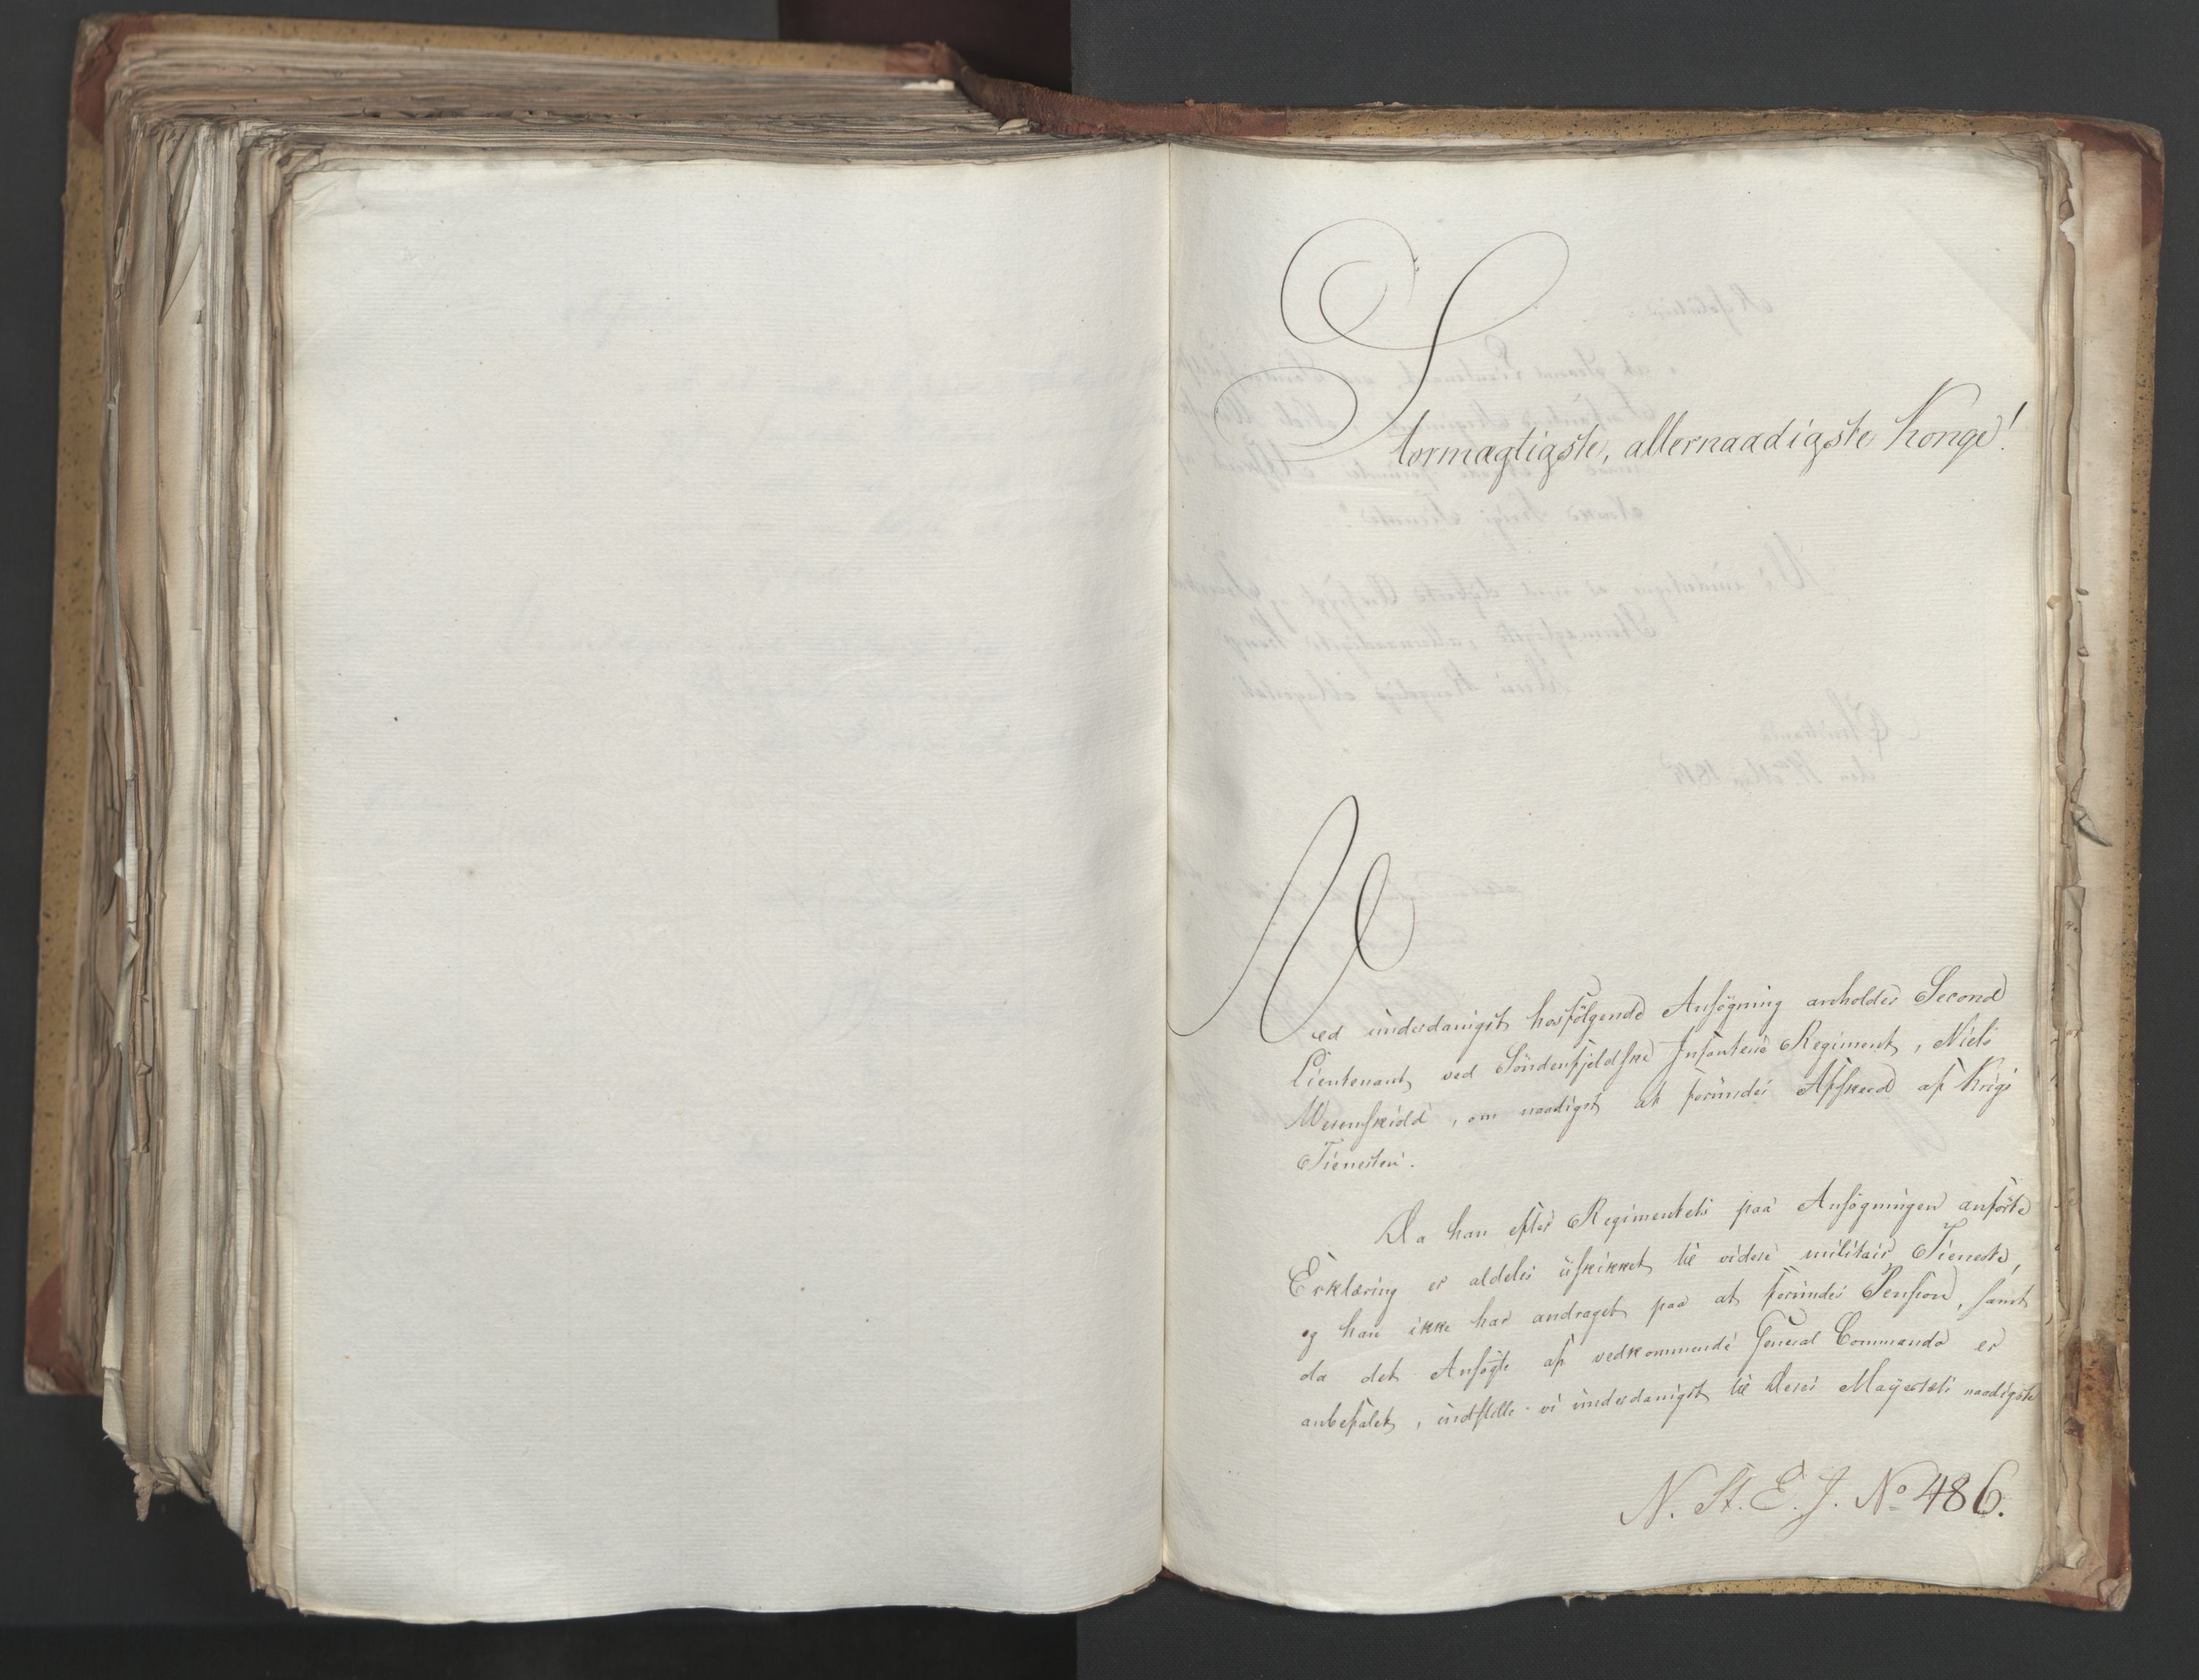 Stormægtigste, allernaadigste Konge!
Ved underdanigst hosfølgende Ansøgning anholder Second
Lieutenant ved Söndenfjeldske Infanterie Regiment, Niels
Werenskiold, om naadigst at forundes Afskeed af Krigs
Tienesten.
Da han efter Regimentets paa Ansøgningen anförte
Erklæring er aldeles uskikket til videre militair Tieneste,
og han ikke har andraget paa at forundes Pension, samt
da det Ansøgte af vedkommende General Commando er
anbefalet, indstille vi underdanigst til Deres Majestæts naadigste
N. St. E. J. No 486.